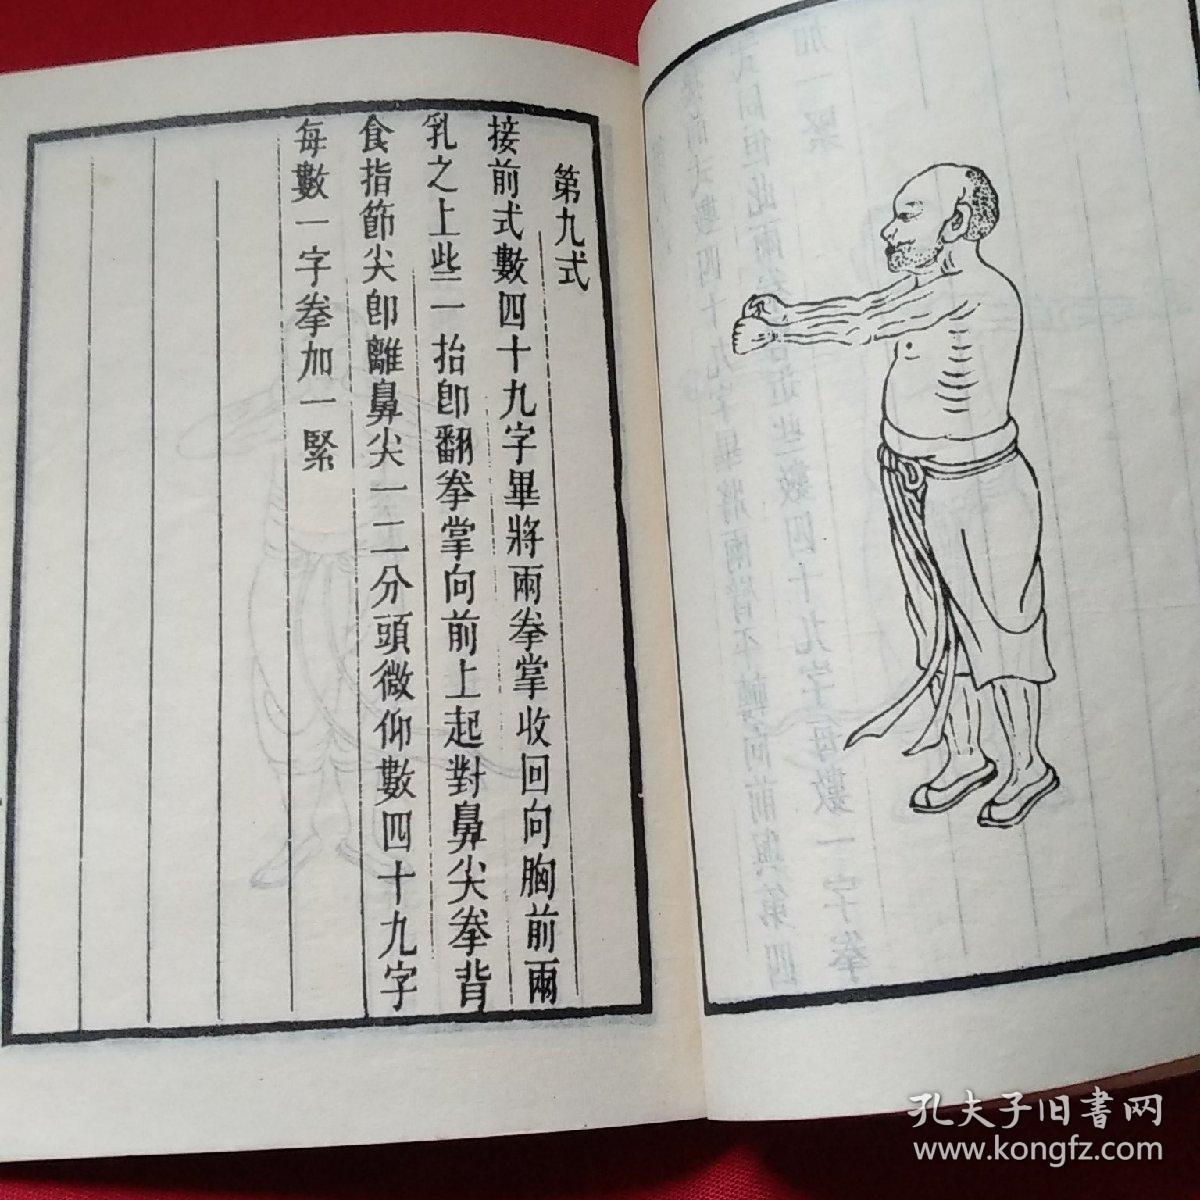 第九式
接前式數四十九字畢將兩拳掌收回向胸前兩
乳之上些一抬卽翻拳掌向前上起對鼻尖拳背
食指節尖卽離鼻尖一二分頭微仰數四十九字
每數一字拳加一緊
孔夫子旧書网
www.kongfz.com